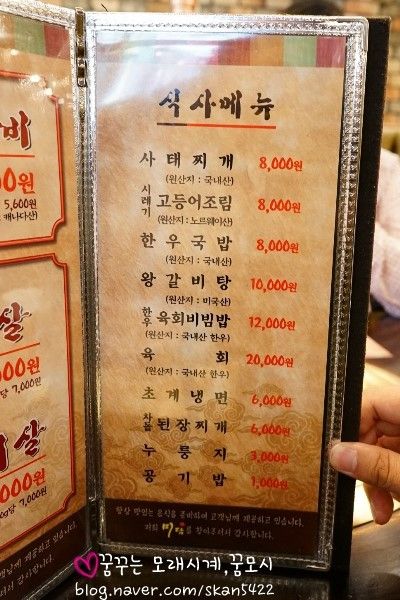 비
0원
5,600원
: 캐나다산)
살
00원
당 7,000원)
살
000원
0g당 7,000원)
식사메뉴
사태찌개 8,000원
(원산지 : 국내산)
시레기 고등어조림 8,000원
(원산지 : 노르웨이산)
한우국밥 8,000원
(원산지 : 국내산)
왕갈비탕 10,000원
(원산지 : 미국산)
한우 육회비빔밥 12,000원
(원산지 : 국내산 한우)
육회 20,000원
(원산지 : 국내산 한우)
초계냉면 6,000원
차돌 된장찌개 6,000원
누룽지 3,000원
공기밥 1,000원
항상 맛있는 음식을 준비하여 고객님께 제공하고 있습니다.
저희 를 찾아주셔서 감사합니다.
제공하고 있습니다.
감사합니다.
꿈꾸는 모래시계,꿈모시
blog.naver.com/skan5422